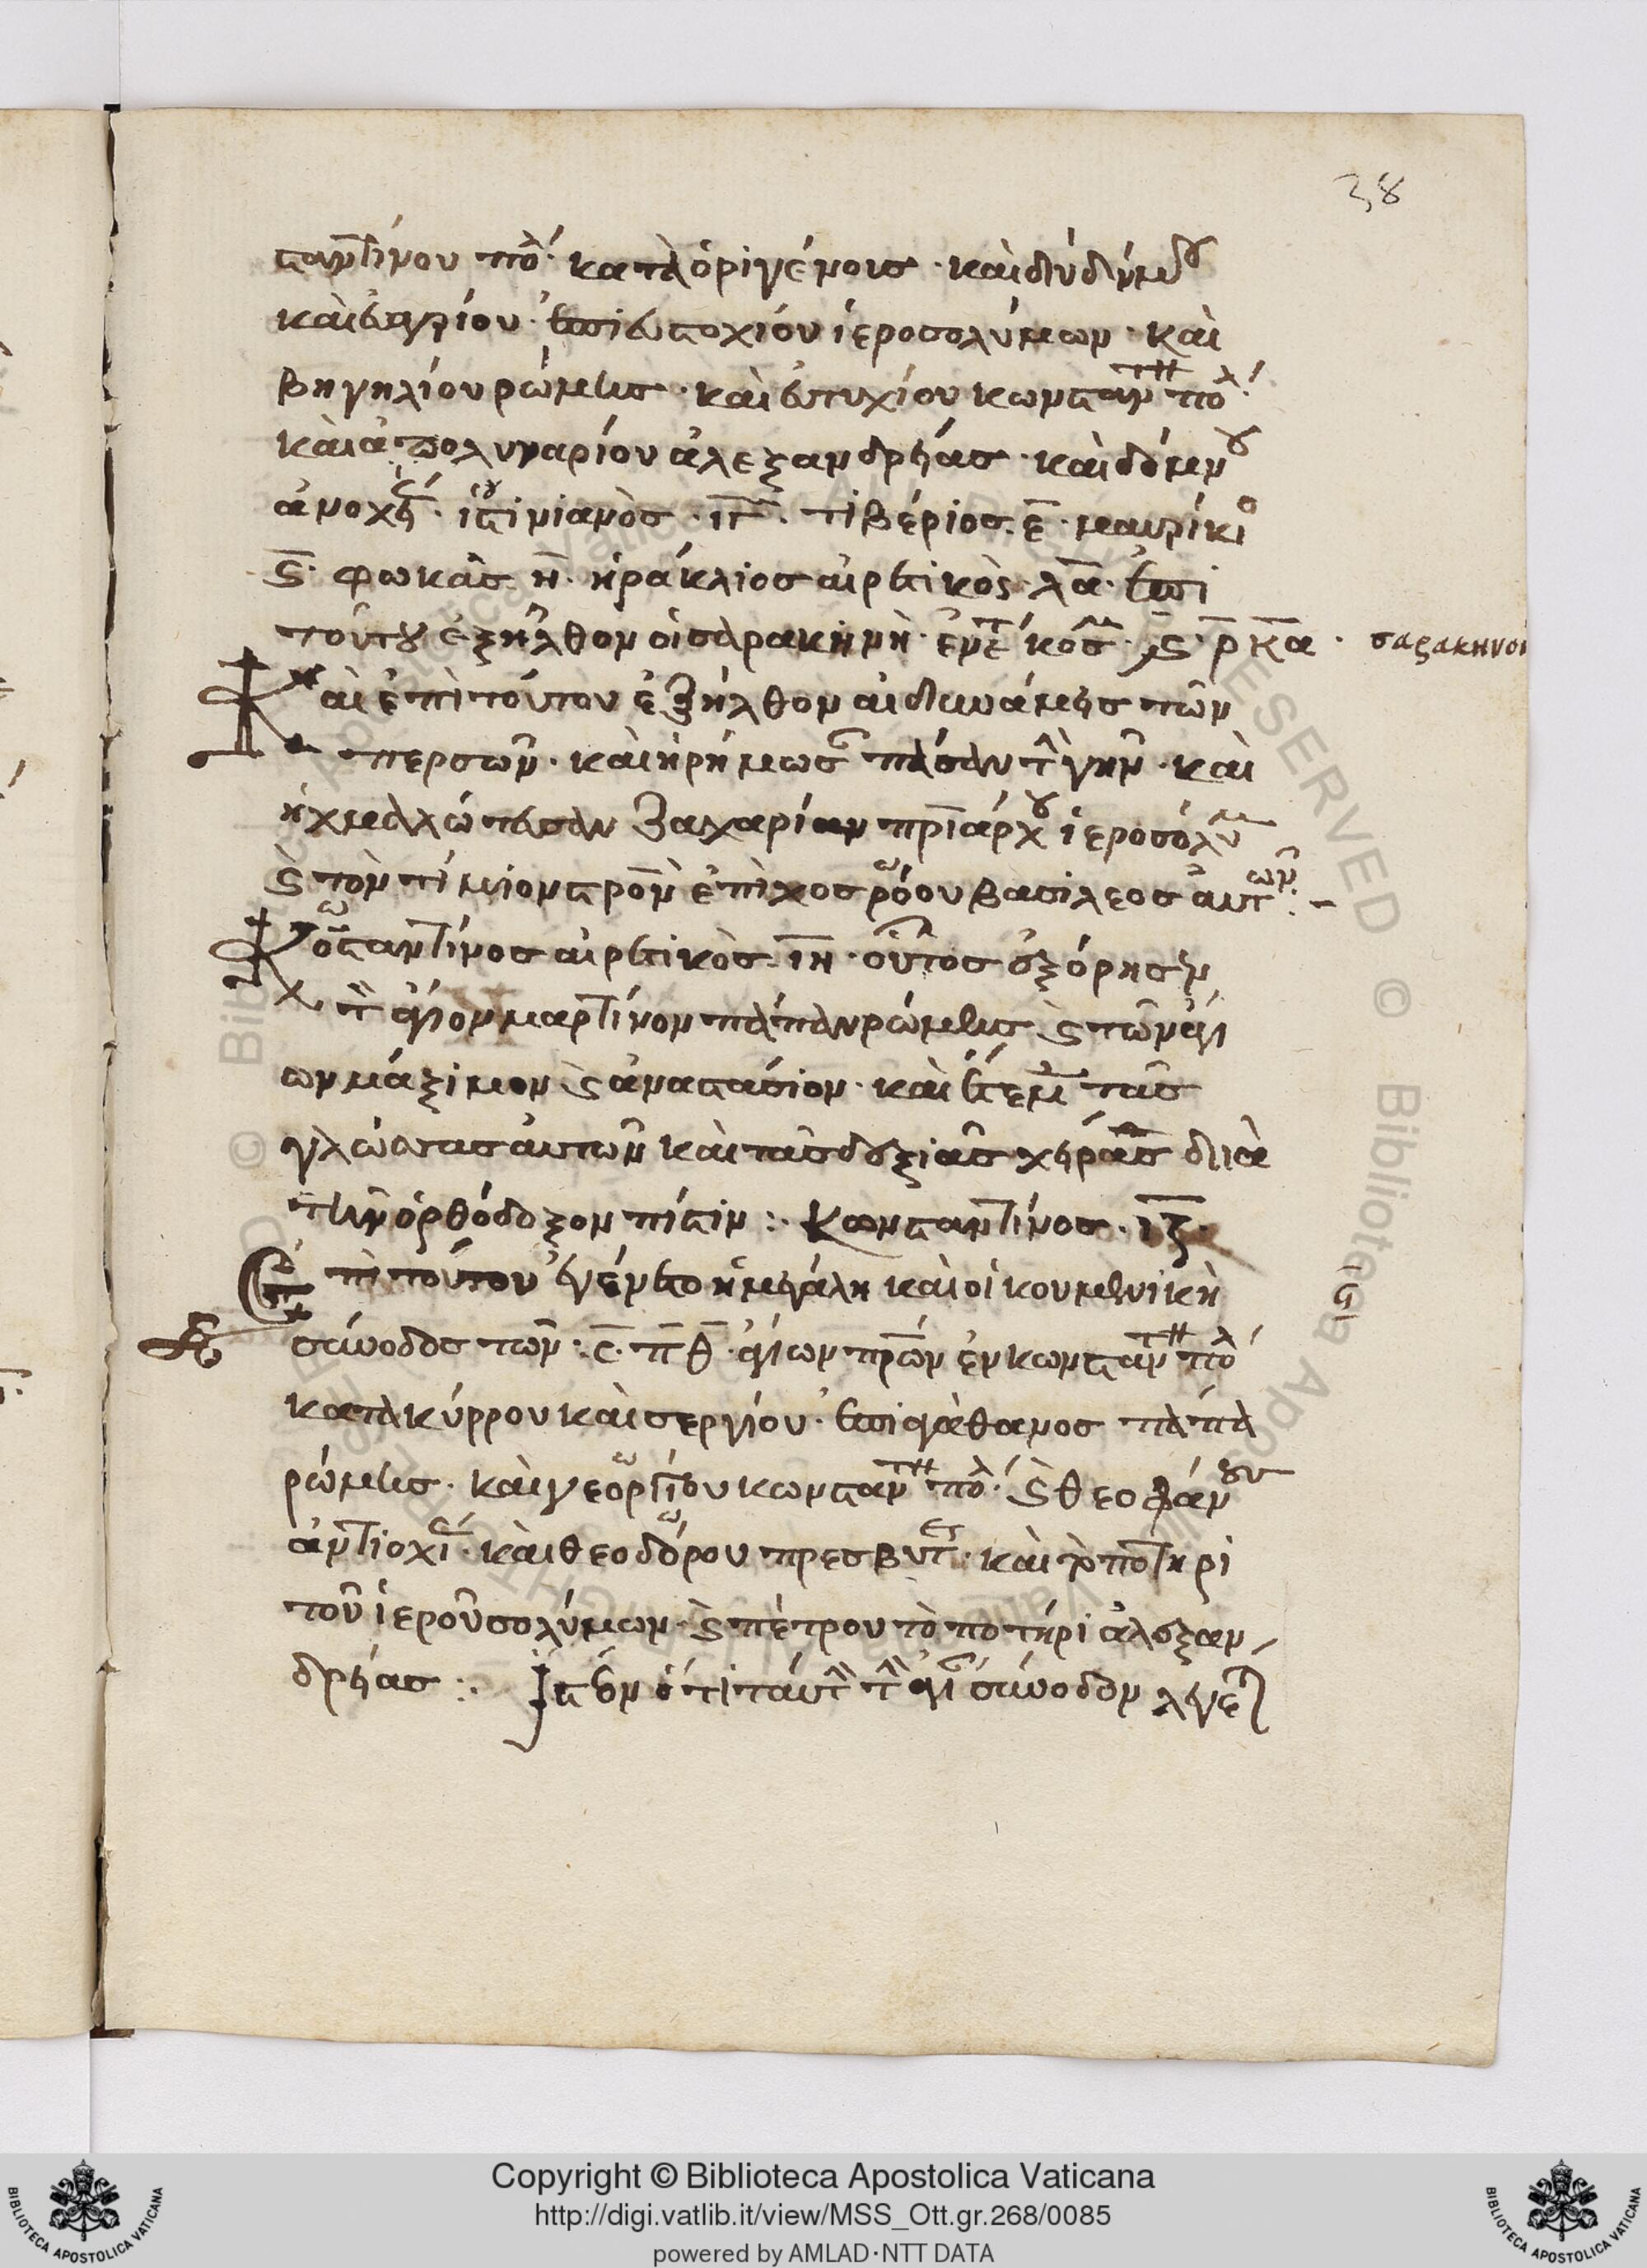 38
σταντίνου πόλ· κατὰ ὀριγένους · καὶ διδύμου
καὶ εὐαγρίου · ἐπὶ εὐστοχίου ἱεροσολύμων · καὶ
βηγηλίου ρώμης · καὶ εὐτυχίου κωνσταντ πολ·
καὶ ἀπολυναρίου ἀλεξανδρείας · καὶ δόμνου
ἀνοχεί · ἰουστινιανὸς · τιβέριος · ε · μαυρίκιο
ς · φωκᾶς · η · ἡράκλιος αἱρετικὸς · λα · ἐπὶ
τούτου ἐξῆλθον οἱ σαρακηνὴ · ἐν ἔτ κόσμ · ͵ς · ρκα · σαρακηνοί
καὶ ἐπὶ τούτου ἐξῆλθον αἱ δυνάμεις τῶν
περσῶν · καὶ ἠρήμωσ πᾶσαν τ γῆν · καὶ
ἠχμαλώτευσαν ζαχαρίαν πριάρχου ἱεροσολύμ
ϛ τὸν τίμιον στρον ἐπὶ χοσρόου βασιλεος αὐτῶν :-
Κωσταντῖνος αἱρετικὸς · ιη · οὗτος ἐξόρησεν
τ ἅγιον μαρτίνον πάπαν ρώμης ϛ τῶν ἁγί
ων μάξιμον ϛ ἀναστάσιον · καὶ ἔτεμ τὰς
γλώττας αὐτῶν καὶ τὰς δεξιὰς χεῖρας διὰ
τὴν ὀρθόδοξον πίστιν :· Κωνσταντῖνος · ιζ ·
Ἐπὶ τούτου ἐγένετο ἡ μεγάλη καὶ οἰκουμενικὴ ϛ
σύνοδος τῶν · ς · π θ · ἁγίων πρων ἐν κωνσταντ πολ
κατὰ κύρρου καὶ σεργίου · ἐπὶ ἀγάθωνος πάπα
ρώμης · καὶ γεωργίου κωνσταντ πολ · ϛ θεοφάνους
ἀντιοχί · καὶ θεοδώρου πρεσβυτ · καὶ τοποτηρι
τοῦ ἱεροῦσολύμων · ϛ πέτρου τοποτήρι ἀλεξαν
δρείας :· Ἰστέον ὅτι ταύτ τ ἁγί σύνοδον λέγε
Copyright © Biblioteca Apostolica Vaticana
http://digi.vatlib.it/view/MSS_Ott.gr.268/0085
powered by AMLAD·NTT DATA
BIBLIOTECA APOSTOLICA VATICANA
BIBLIOTECA APOSTOLICA VATICANA